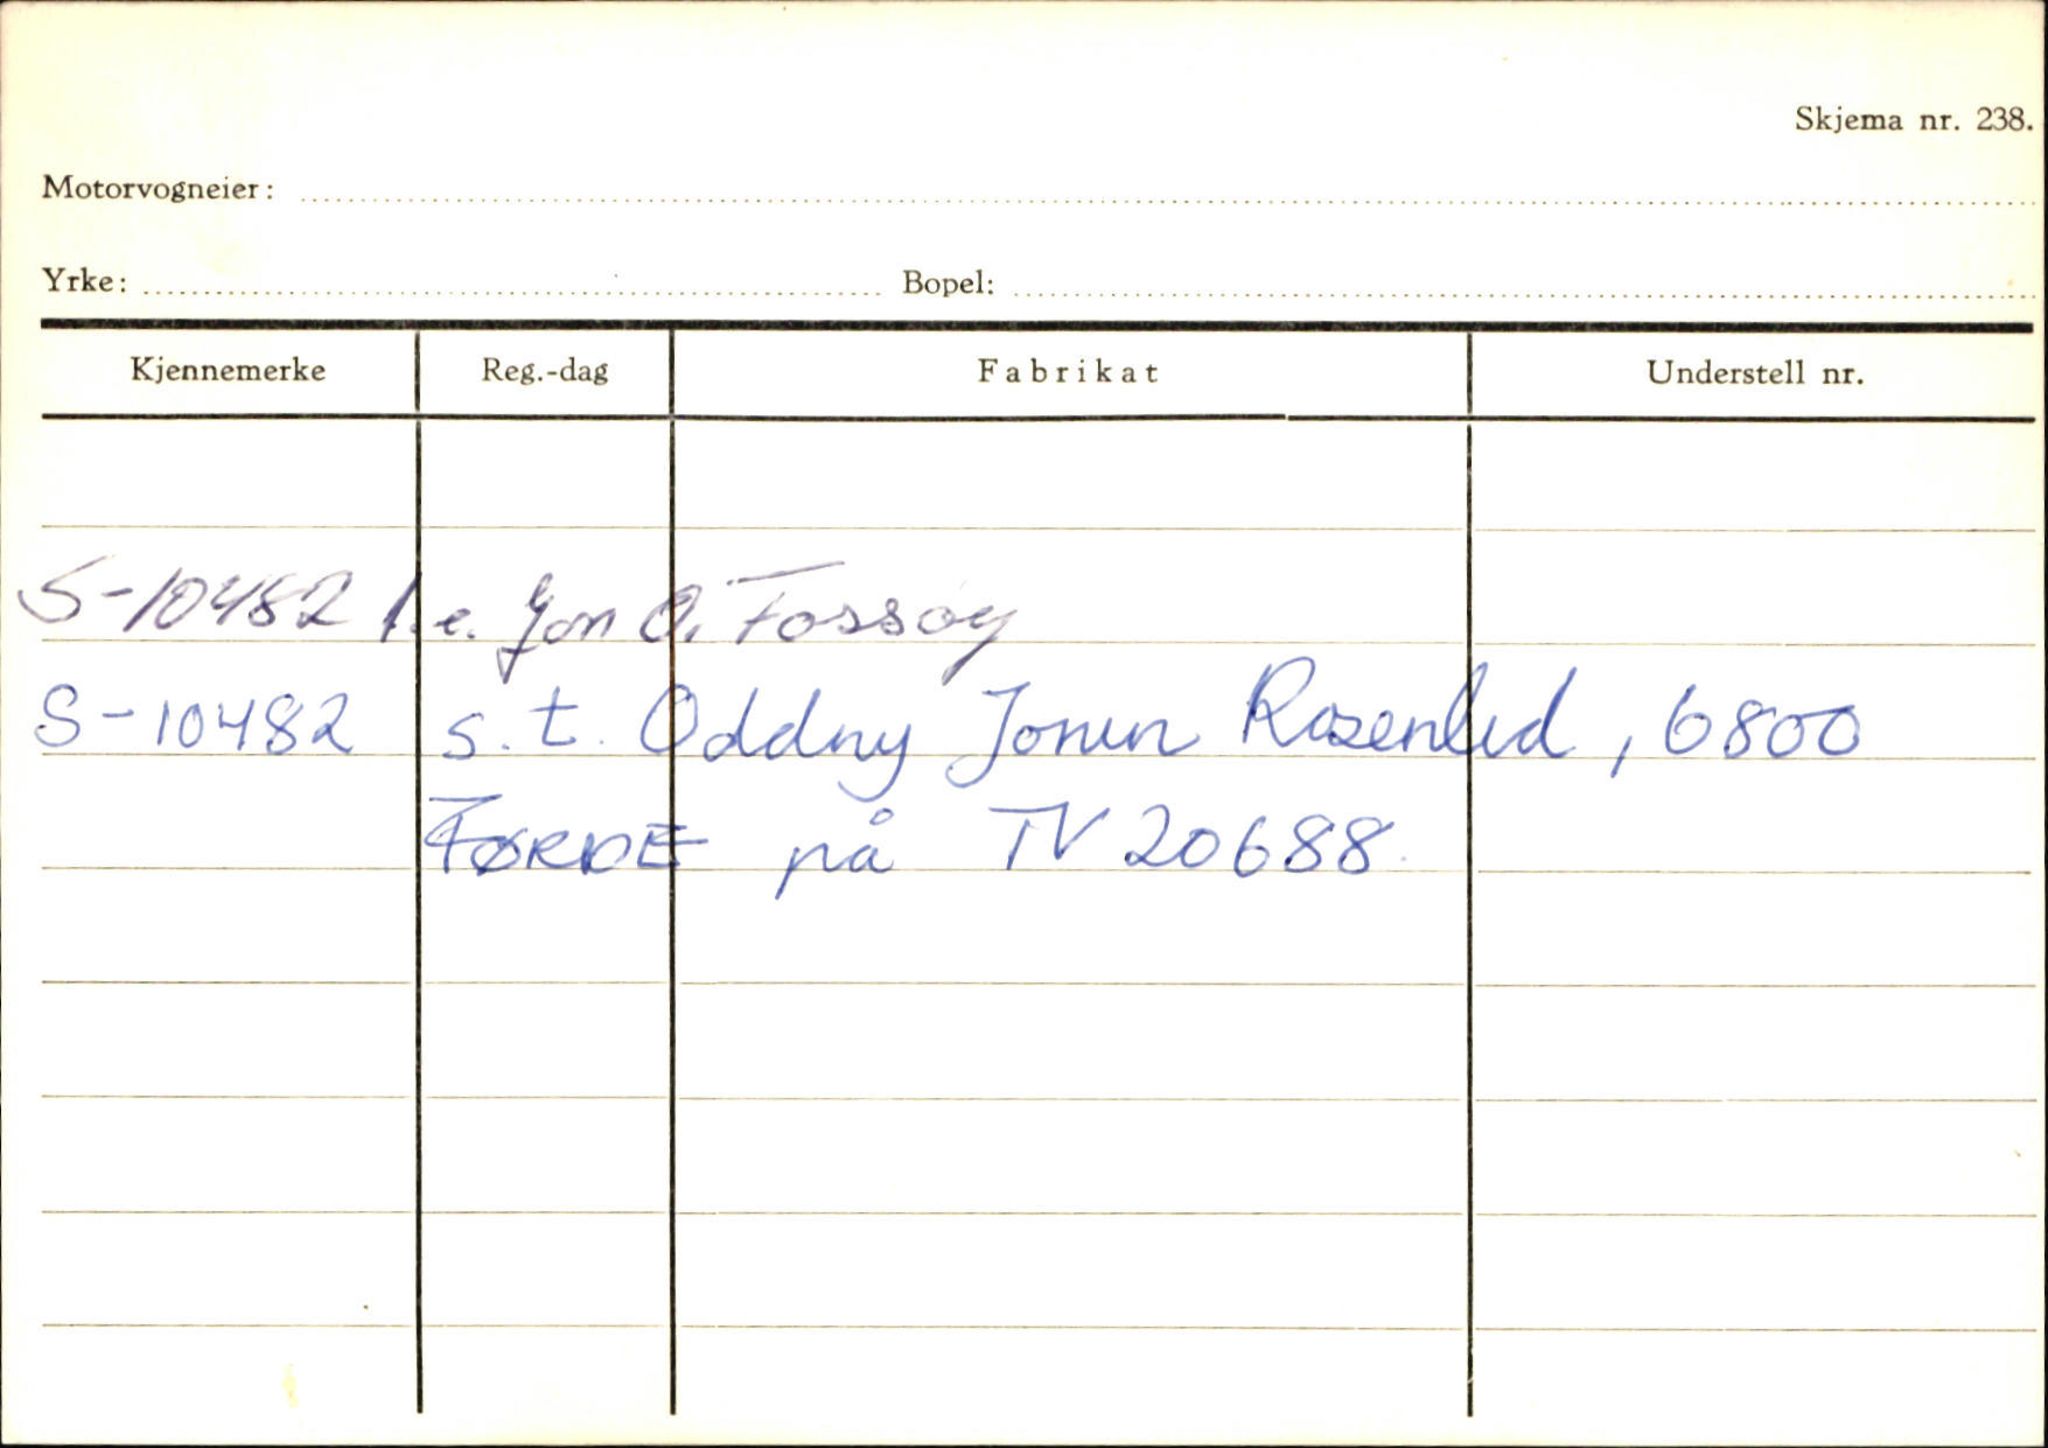 Skjema nr. 238.
Motorvogneier:
Yrke: Bopel:
Kjennemerke Reg.-dag Fabrikat Understell nr.
S-10482 f.e. Jon O. Fossøy
S-10482 s.t. Oddny Jorun Rosenlid, 6800
FØRDE på TV 20688.